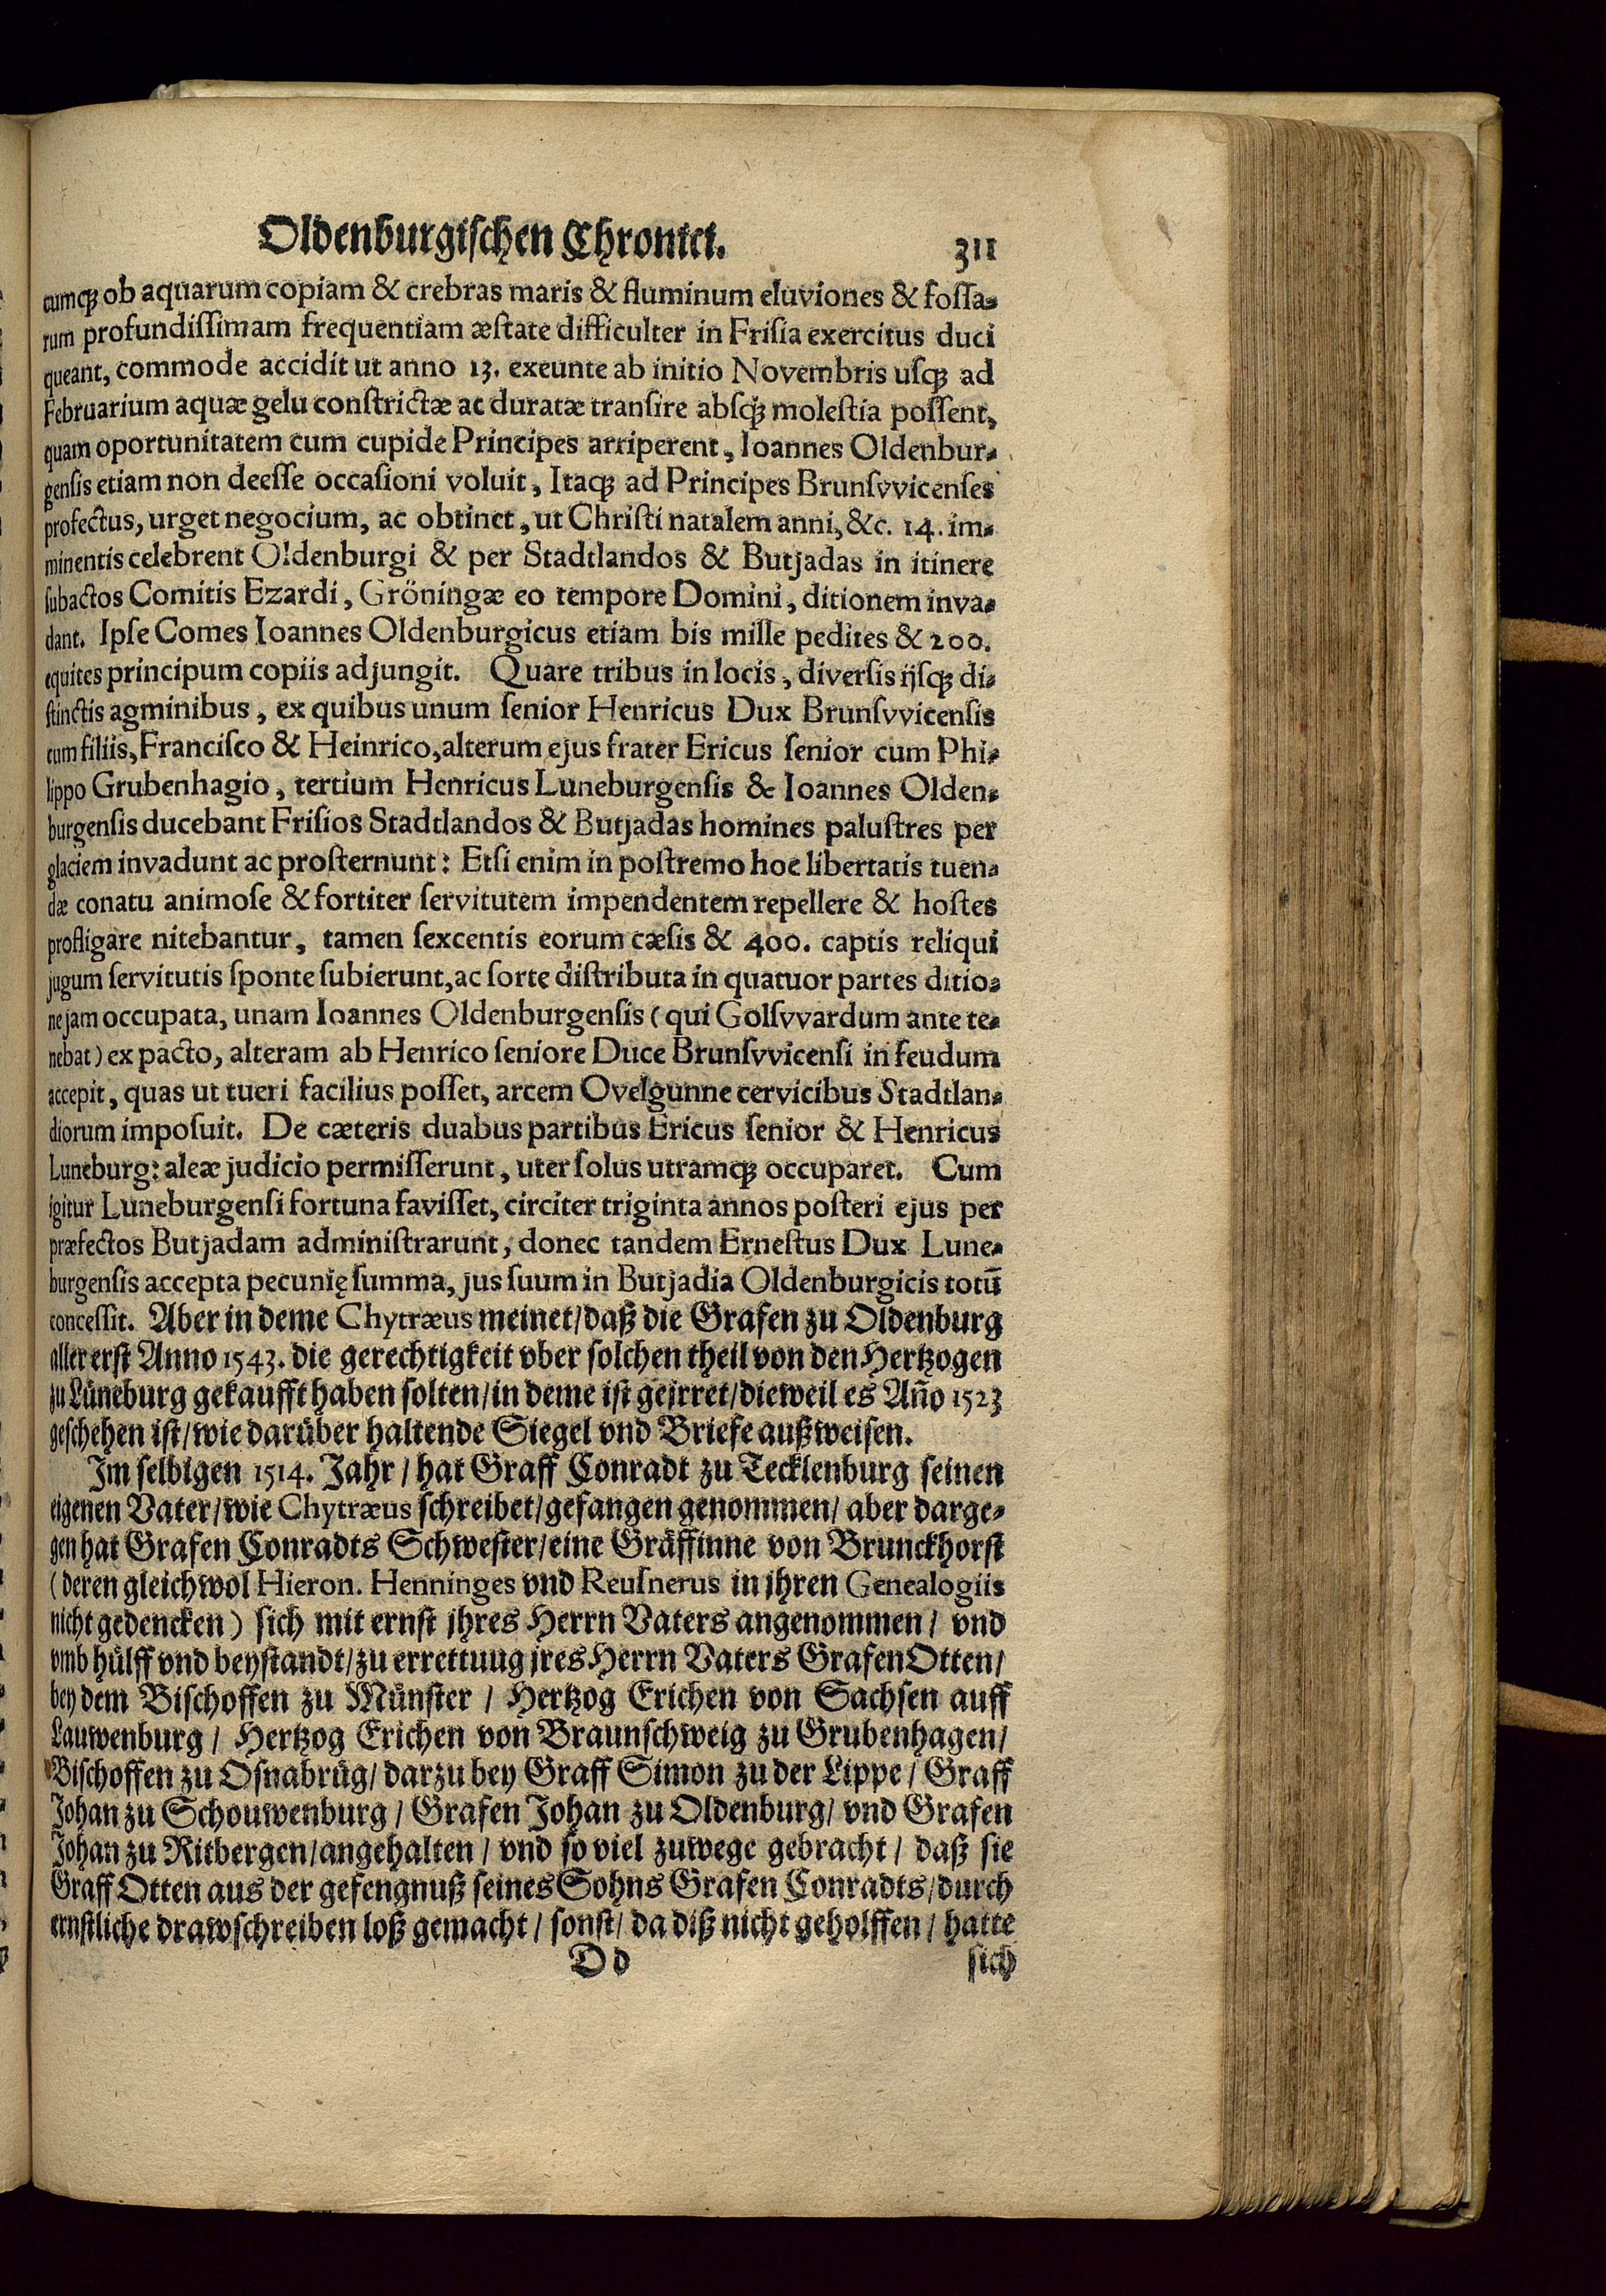 Oldenburgischen Chronici. 311
cumq́; ob aquarum copiam & crebras maris & fluminum eluviones & fossa-
rum profundissimam frequentiam æstate difficulter in Frisia exercitus duci
queant, commode accidit ut anno 13. exeunte ab initio Novembris usq́; ad
Februarium aquæ gelu constrictæ ac duratæ transire absq́; molestia possent,
quam oportunitatem cum cupide Principes arriperent, Ioannes Oldenbur-
gensis etiam non deesse occasioni voluit, Itaq́; ad Principes Brunsvvicenses
profectus, urget negocium, ac obtinet, ut Christi natalem anni, &c. 14. im-
minentis celebrent Oldenburgi & per Stadtlandos & Butjadas in itinere
subactos Comitis Ezardi, Gröningæ eo tempore Domini, ditionem inva-
dant. Ipse Comes Ioannes Oldenburgicus etiam bis mille pedites & 200.
equites principum copiis adjungit. Quare tribus in locis, diversis ijsq́; di-
stinctis agminibus, ex quibus unum senior Henricus Dux Brunsvvicensis
cum filiis, Francisco & Heinrico, alterum ejus frater Ericus senior cum Phi-
lippo Grubenhagio, tertium Henricus Luneburgensis & Ioannes Olden-
burgensis ducebant Frisios Stadtlandos & Butjadas homines palustres per
glaciem invadunt ac prosternunt: Etsi enim in postremo hoc libertatis tuen-
dæ conatu animose & fortiter servitutem impendentem repellere & hostes
profligare nitebantur, tamen sexcentis eorum cæsis & 400. captis reliqui
jugum servitutis sponte subierunt, ac sorte distributa in quatuor partes ditio-
ne jam occupata, unam Ioannes Oldenburgensis (qui Golsvvardum ante te-
nebat) ex pacto, alteram ab Henrico seniore Duce Brunsvvicensi in feudum
accepit, quas ut tueri facilius posset, arcem Ovelgunne cervicibus Stadtlan-
diorum imposuit. De cæteris duabus partibus Ericus senior & Henricus
Luneburg: aleæ judicio permisserunt, uter solus utramq́; occuparet. Cum
igitur Luneburgensi fortuna favisset, circiter triginta annos posteri ejus per
præfectos Butjadam administrarunt, donec tandem Ernestus Dux Lune-
burgensis accepta pecunię summa, jus suum in Butjadia Oldenburgicis totū
concessit. Aber in deme Chytræus meinet/ daß die Grafen zu Oldenburg
aller erst Anno 1543. die gerechtigkeit vber solchen theil von den Hertzogen
zu Lüneburg gekaufft haben solten/ in deme ist geirret/ dieweil es Año 1523
geschehen ist/ wie darüber haltende Siegel vnd Briefe außweisen.
Im selbigen 1514. Jahr/ hat Graff Conradt zu Tecklenburg seinen
eigenen Vater/ wie Chytræus schreibet/ gefangen genommen/ aber darge-
gen hat Grafen Conradts Schwester/ eine Gräffinne von Brunckhorst
(deren gleichwol Hieron. Henninges vnd Reusnerus in jhren Genealogiis
nicht gedencken) sich mit ernst jhres Herrn Vaters angenommen/ vnd
vmb hülff vnd beystandt/ zu errettuug jres Herrn Vaters Grafen Otten/
bey dem Bischoffen zu Münster/ Hertzog Erichen von Sachsen auff
Lauwenburg/ Hertzog Erichen von Braunschweig zu Grubenhagen/
Bischoffen zu Osnabrüg/ darzu bey Graff Simon zu der Lippe/ Graff
Johan zu Schouwenburg/ Grafen Johan zu Oldenburg/ vnd Grafen
Johan zu Ritbergen/ angehalten/ vnd so viel zuwege gebracht/ daß sie
Graff Otten aus der gefengnuß seines Sohns Grafen Conradts/ durch
ernstliche drawschreiben loß gemacht/ sonst/ da diß nicht geholffen/ hatte
D d sich